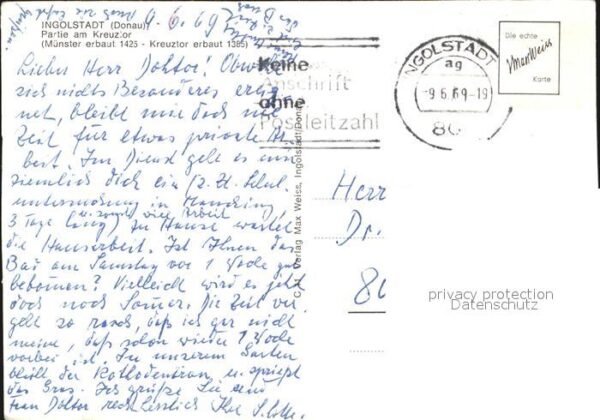 INGOLSTADT (Donau)
Partie am Kreuztor
(Münster erbaut 1425 - Kreuztor erbaut 1385)
9.6.69
Lieber Herr Doktor! Obwohl
sich nichts Besonderes ereig
net, bleibt mir doch nie
Zeit für etwas private
beit. Im Dienst geht es
ziemlich dick ein (z. Zt. Schul
untersuchung in Manching
3 Tage lang) u. sonst viel Arbeit zu Hause wartet
die Hausarbeit. Ist Ihnen das
Bad am Samstag vor 1 Woche gut
bekommen? Vielleicht wird es jetzt
doch noch Sommer. Die Zeit ver
geht so rasch, daß ich gar nicht
meine, daß schon wieder 1 Woche
vorbei ist. In unserem Garten
blüht der Rhododendron u. sprießt
das Gras. Ich grüße Sie
Frau Doktor recht herzlich Ihr
Keine
Anschrift
ohne
Postleitzahl
INGOLSTADT
ag
-9.6.69-19
80
Die echte
Max Weiss
Karte
Verlag Max Weiss, Ingolstadt/Donau
Herr
Dr.
80
privacy protection
Datenschutz